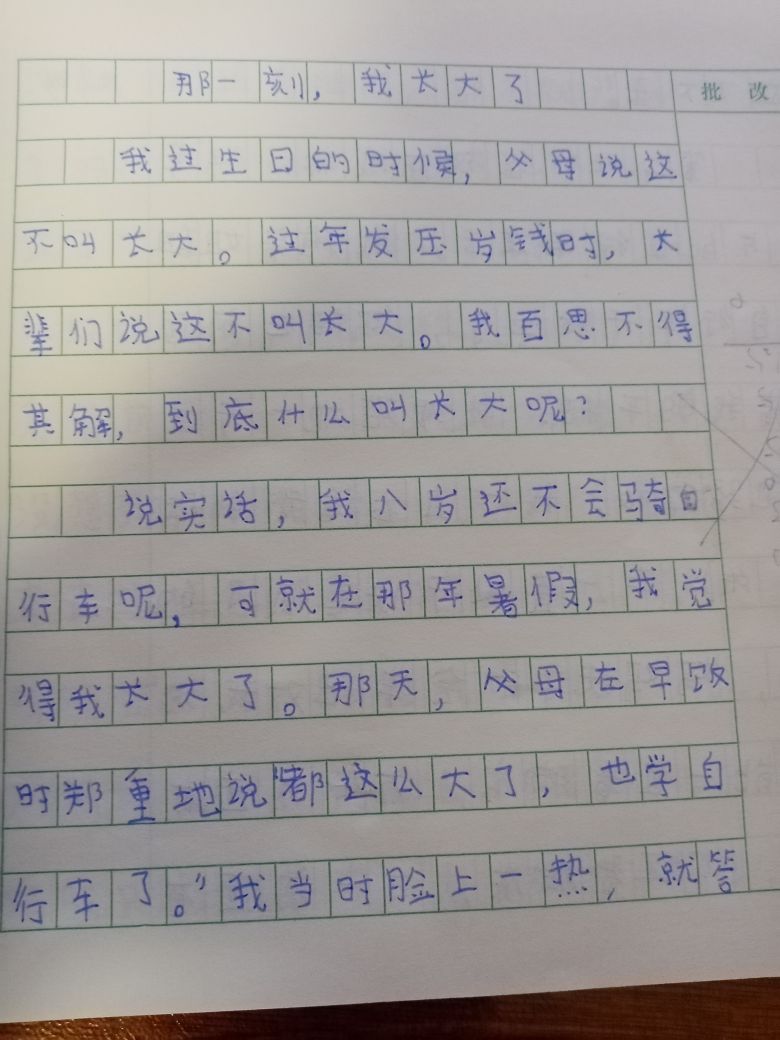 那一刻，我长大了
批改
我过生日的时候，父母说这
不叫长大。过年发压岁钱时，长
辈们说这不叫长大。我百思不得
其解，到底什么叫长大呢？
说实话，我八岁还不会骑自
行车呢，可就在那年暑假，我觉
得我长大了。那天，父母在早饭
时郑重地说“都这么大了，也学自
行车了。”我当时脸上一热，就答